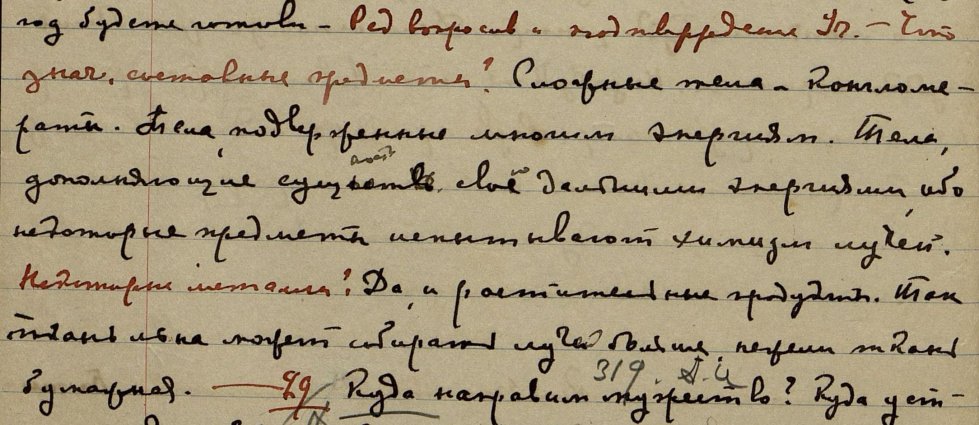 год будете готовы – Ряд вопросов и подтверждение Ур. – Что
знач. составные предметы? Сложные тела – Конгломе-
раты. Тела, подверженные многим энергиям. Тела,
дополняющие сущность своё дальними энергиями, ибо
некоторые предметы испытывают химизм лучей.
Некоторые металлы? Да, и растительные продукты. Так
ткань льна может собирать лучей больше, нежели ткань
бумажная. — 319. А.Й
Куда направим мужество? Куда уст-